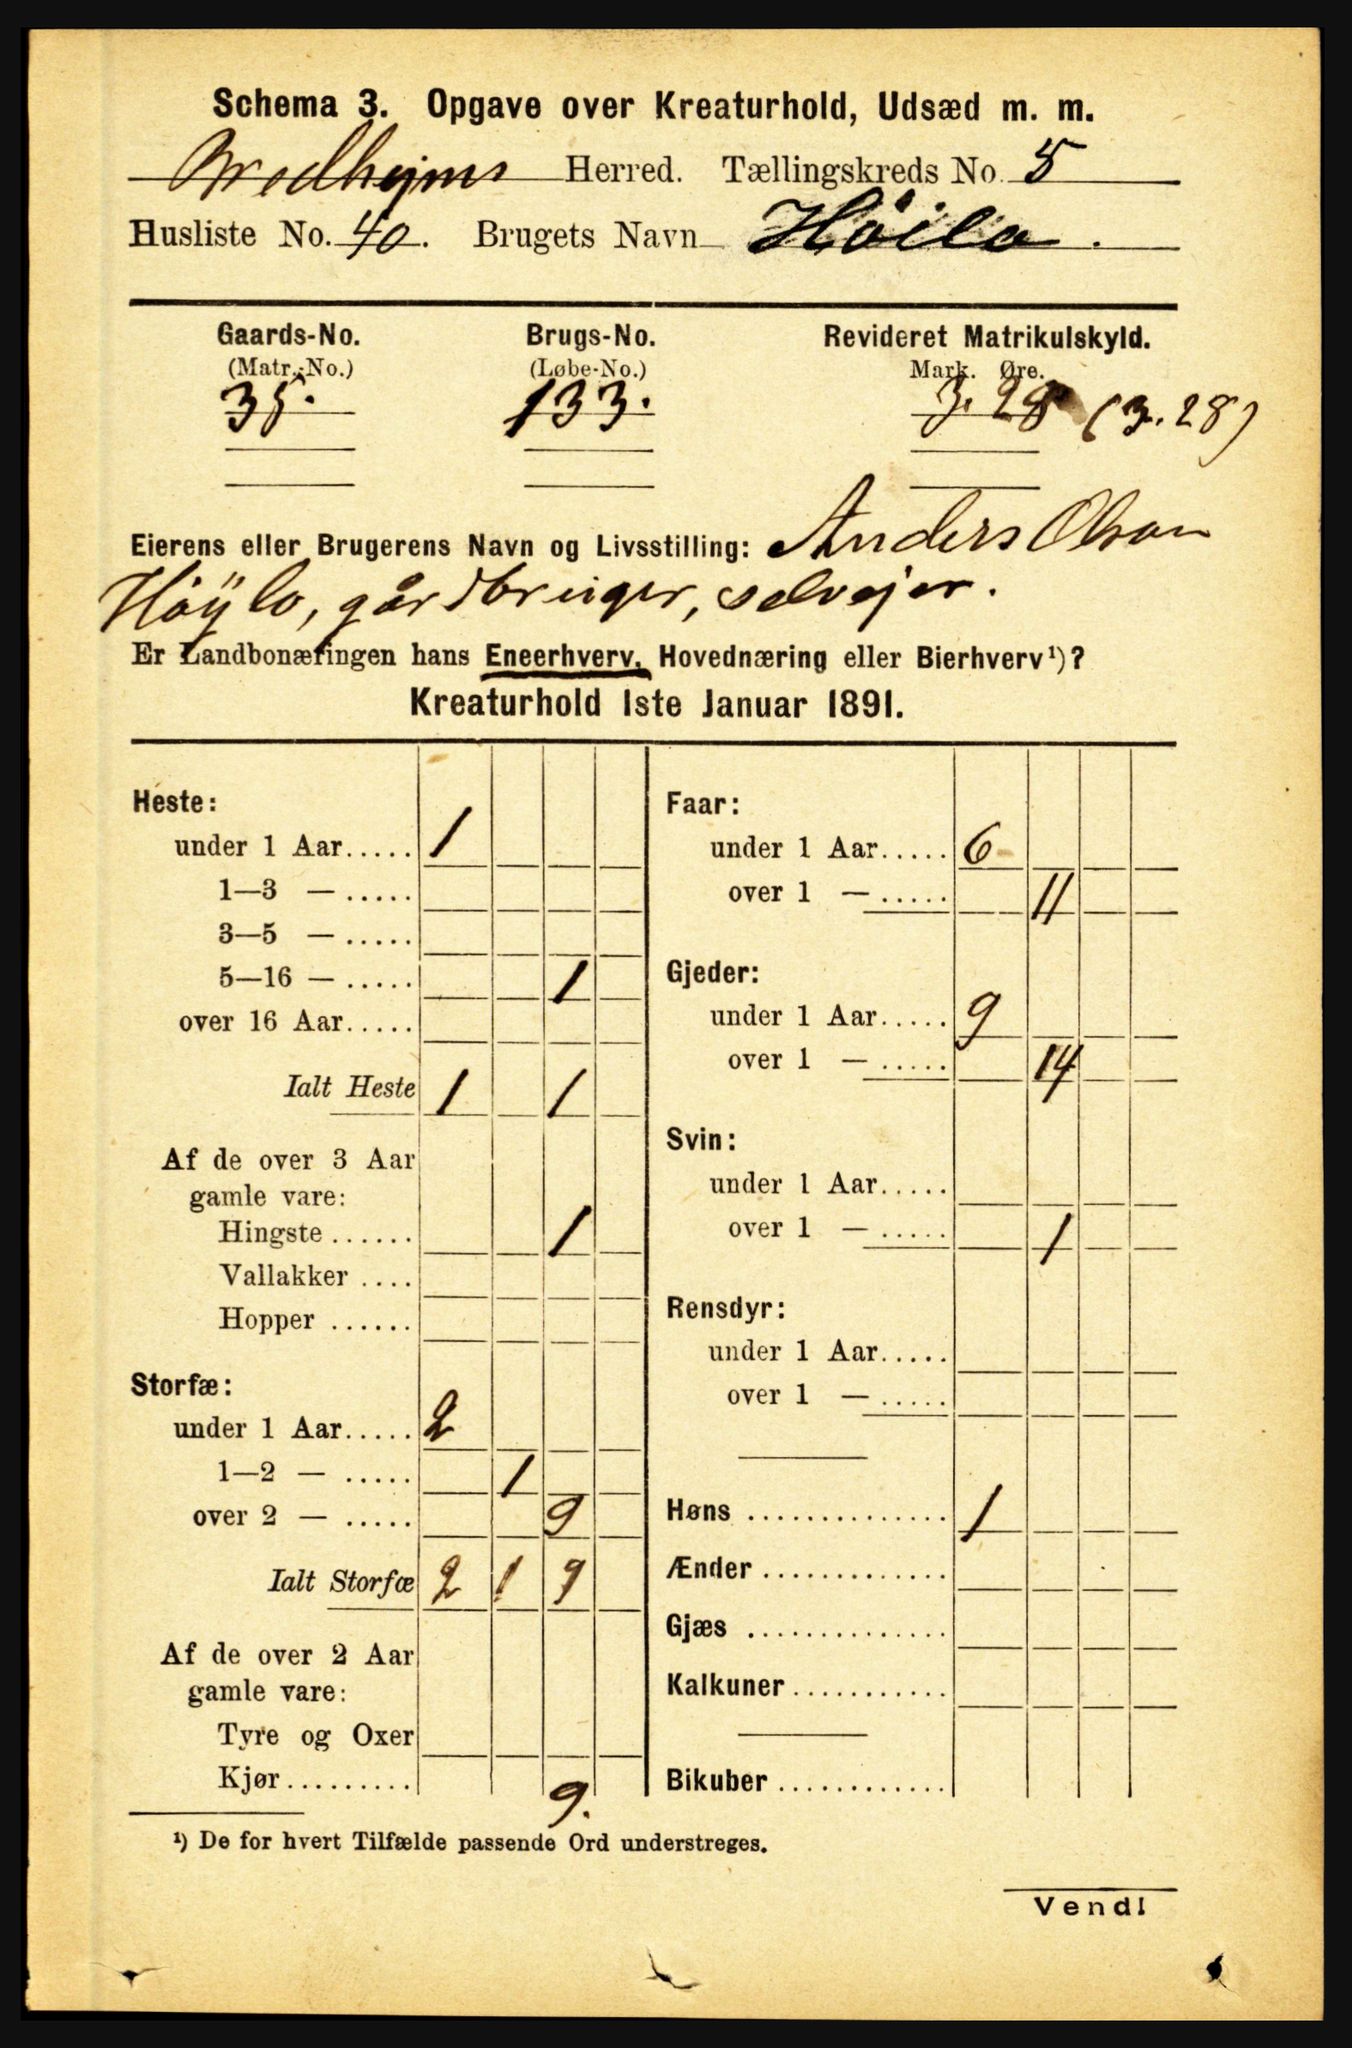 Schema 3. Opgave over Kreaturhold, Udsæd m. m.
Herred. Tællingskreds No. 5
Husliste No. 40. Brugets Navn Höilo.
Gaards-No. Brugs-No. Revideret Matrikulskyld.
(Matr.-No.) (Løbe-No.) Mark. Øre.
35. 133. 3. 28 (3. 28)
Eierens eller Brugerens Navn og Livsstilling: Anders Olson
Höÿlo, gårdbruger, selvejer.
Er Landbonæringen hans Eneerhverv, Hovednæring eller Bierhverv¹)?
Kreaturhold 1ste Januar 1891.
Heste:
under 1 Aar..... 1
1—3 — .....
3—5 — .....
5—16 — ..... 1
over 16 Aar.....
Ialt Heste 1 1
Af de over 3 Aar
gamle vare:
Hingste ...... 1
Vallakker ....
Hopper ......
Storfæ:
under 1 Aar..... 2
1—2 — ..... 1
over 2 — ..... 9
Ialt Storfæ 2 1 9
Af de over 2 Aar
gamle vare:
Tyre og Oxer
Kjør......... 9.
Faar:
under 1 Aar..... 6
over 1 — ..... 11
Gjeder:
under 1 Aar..... 9
over 1 — ..... 14
Svin:
under 1 Aar.....
over 1 — ..... 1
Rensdyr:
under 1 Aar.....
over 1 — .....
Høns .............. 1
Ænder .............
Gjæs ..............
Kalkuner...........
Bikuber ............
¹) De for hvert Tilfælde passende Ord understreges.
Vend!